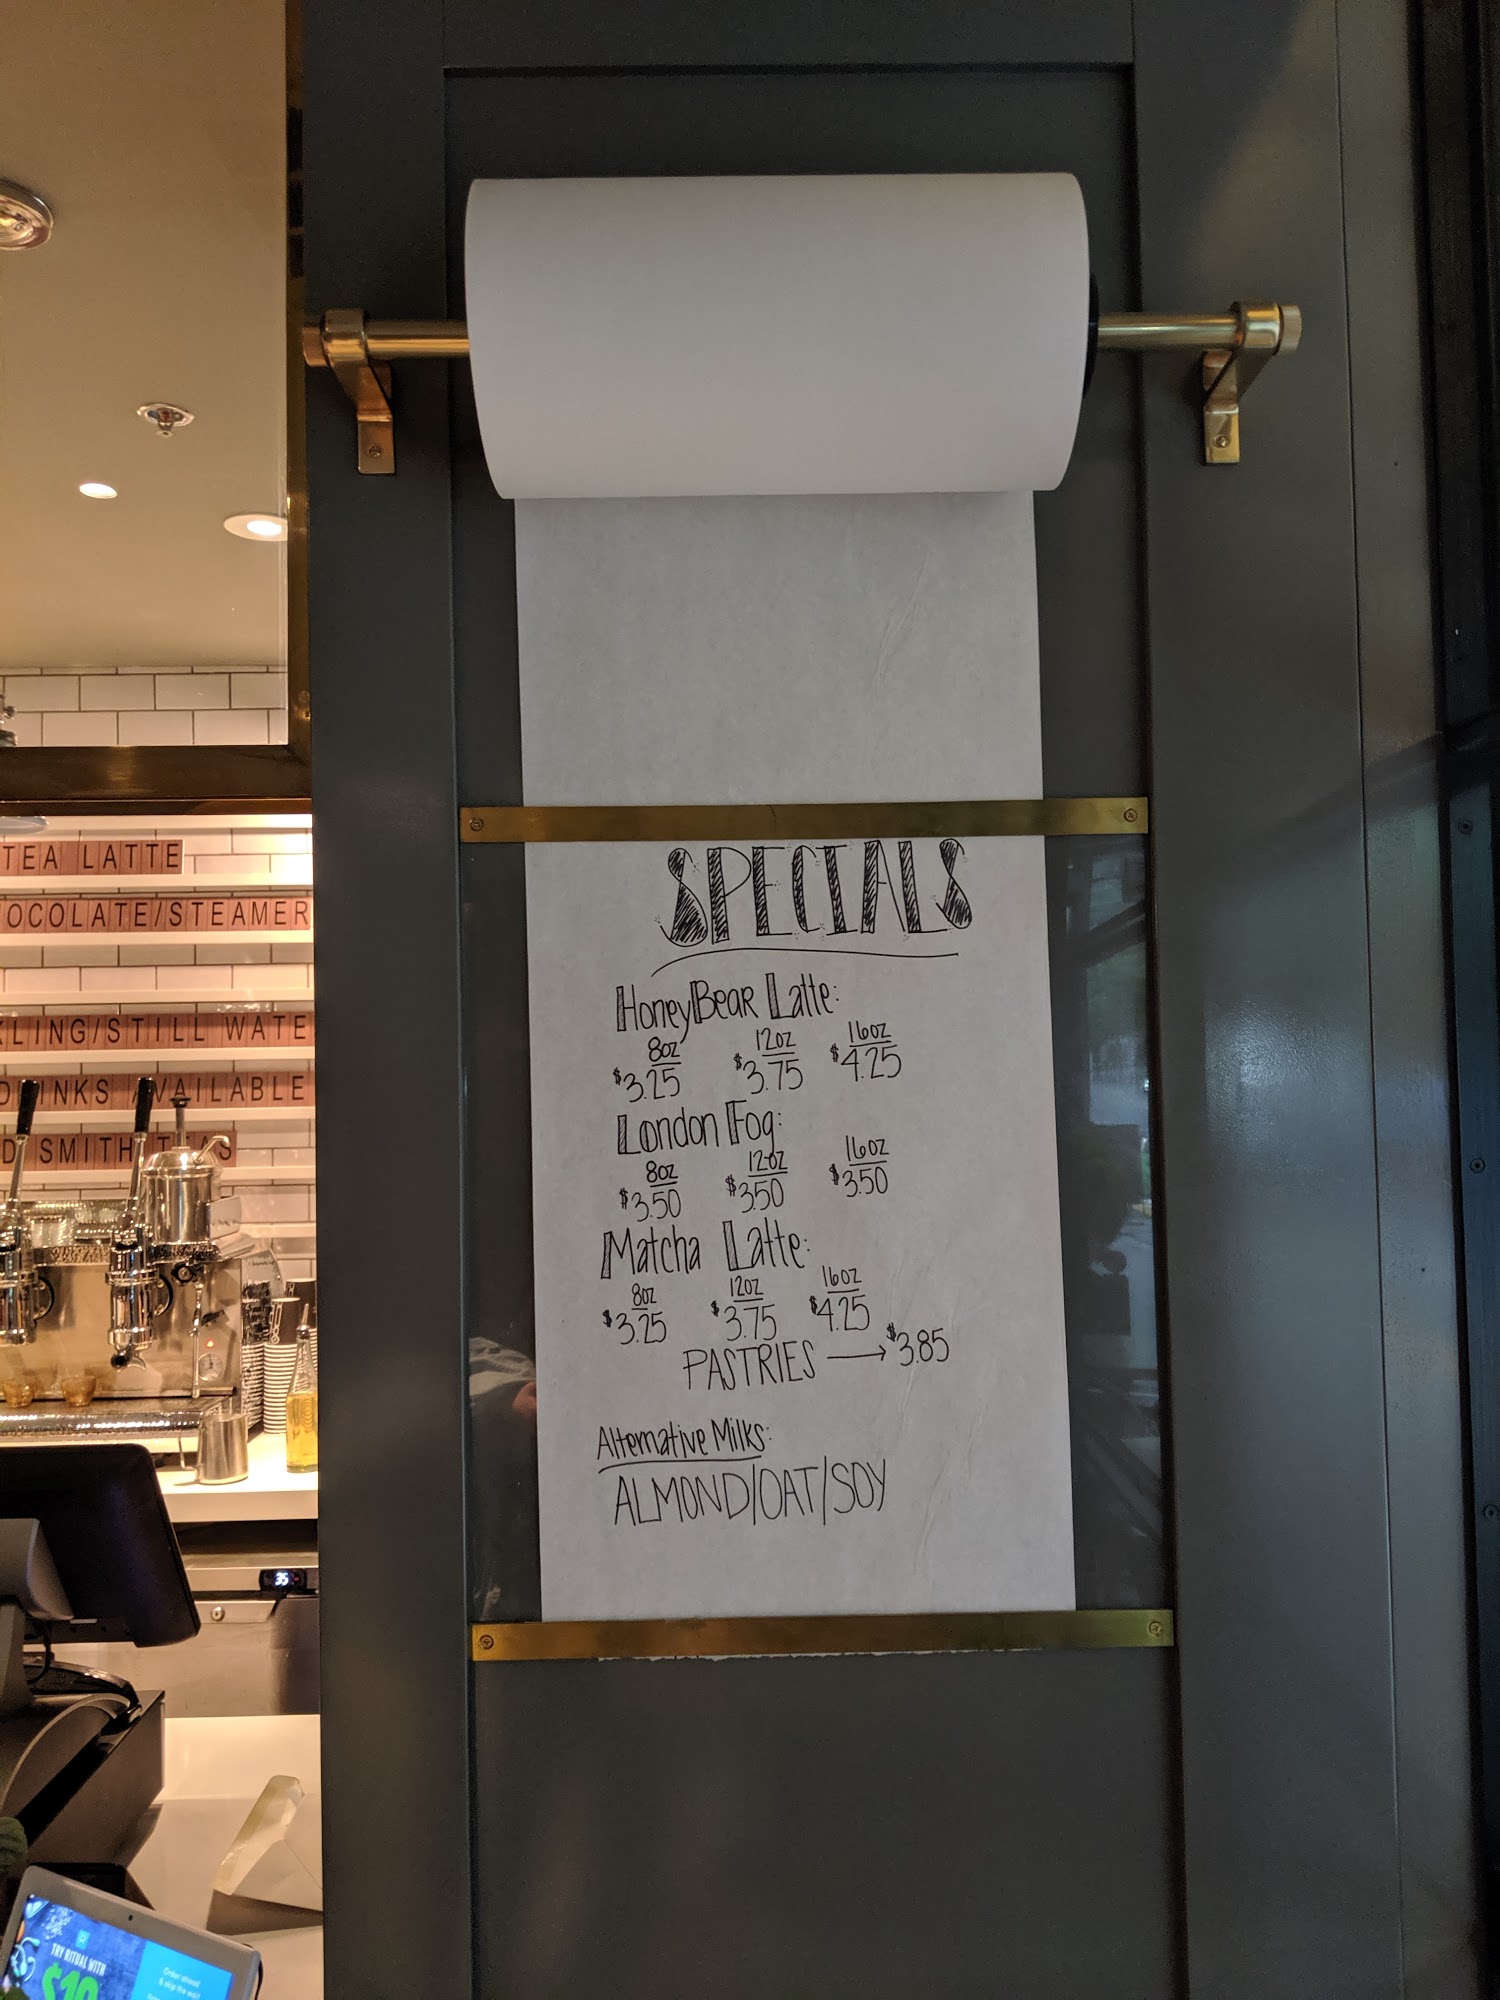 SPECIALS
HoneyBear Latte:
8oz 12oz 16oz
$3.25 $3.75 $4.25
London Fog:
8oz 12oz 16oz
$3.50 $3.50 $3.50
Matcha Latte:
8oz 12oz 16oz
$3.25 $3.75 $4.25
PASTRIES → $3.85
Alternative Milks:
ALMOND/OAT/SOY
TEA LATTE
OCOLATE/STEAMER
KLING/STILL WATE
DRINKS AVAILABLE
D SMITH TEAS
35
TRY RITUAL WITH
$10
Order ahead
& skip the wait